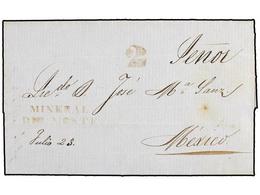 2
Señor
Lic.do D. José M.a Sanz
MINERAL
DEL MONTE
Julio 23.
México